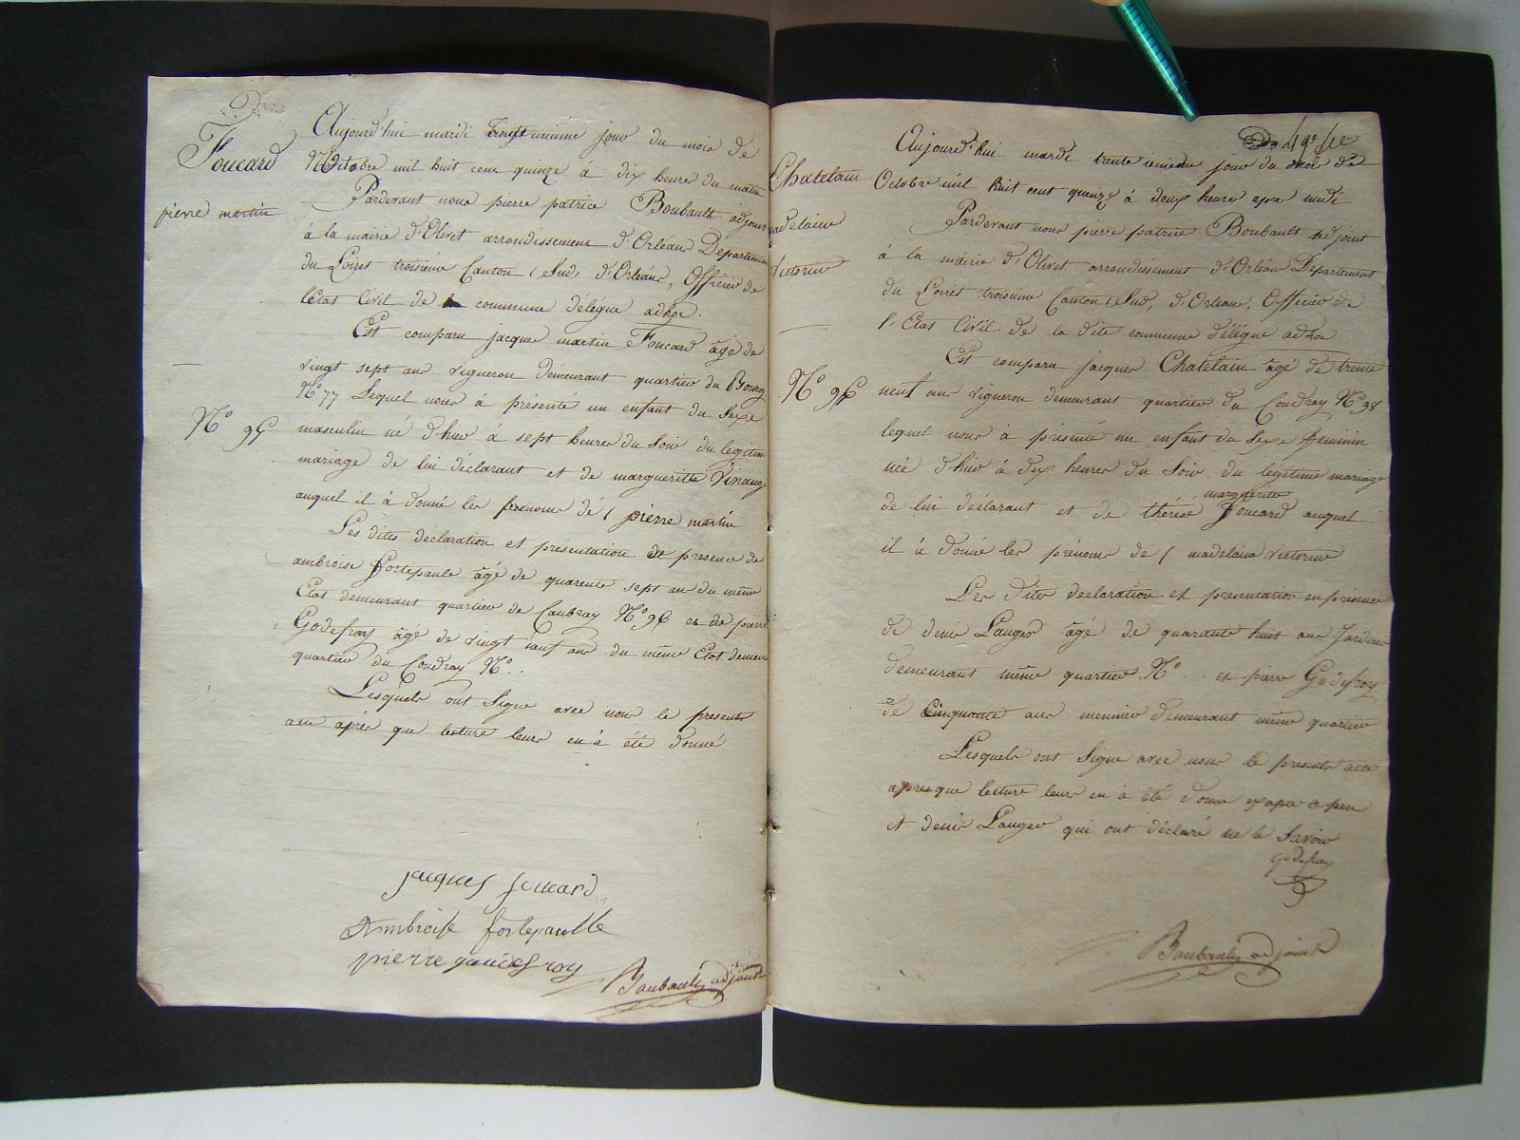 Foucard
pierre martin
N.o 95
Aujourd'hui mardi trente unieme jour du mois de
Octobre mil huit cent quinze à dix heure du matin
Pardevant nous pierre patrice Boubault adjoint
à la mairie d'Olivet arrondissement d'Orléans Departement
du Loiret troisieme Canton (Sud) d'Orleans, Officier de
létat Civil de la commune délégué adhoc.
Est comparu jacque martin Foucard âgé de
vingt sept ans vigneron demeurant quartier du Bourg
N.o 77 Lequel nous à présenté un enfant du Sexe
masculin né d'hier à sept heures du Soir du legitime
mariage de lui déclarant et de margueritte
auquel il à donné les prenoms de ( pierre martin
Les dites declaration et presentation de presence de
ambroise fortepaule âgé de quarente sept an du même
Etat demeurant quartier de N.o 96 et de pierre
Godefroy âgé de vingt neuf ans du même Etat demeur
quartier du Coudray N.o ..
Lesquels ont Signe avec nous le present
acte après que lecture leurs en à été donné
jacques foucard
Ambroise fortepaulle
pierre godefroy
Boubault adjoint
Chatelain
madelaine
victorine
N.o 96
Aujourd'hui mardi trente unieme jour du mois de
Octobre mil huit cent quinze à deux heures apres midi
Pardevant nous pierre patrice Boubault adjoint
à la mairie d'Olivet arrondissement d'Orléans Departement
du Loiret troisieme Canton (Sud) d'Orleans, Officier de
l'Etat Civil de la dite commune délégué adhoc
Est comparu jacques Chatelain âgé de trente
neuf ans vigneron demeurant quartier du Coudray N.o 98
lequel nous à présenté un enfant du Sexe feminin
née d'hier à dix heures du Soir du légitime mariage
marguerite
de lui déclarant et de thérèse Foucard auquel
il à donné les prénoms de ( madelaine victorine
Les dites declaration et presentation en presence
de denis Lauger âgé de quarante huit ans Jardinier
demeurant même quartier N.o .. et pierre Godefroy
de Cinquante ans meunier demeurant même quartier
Lesquels ont Signe avec nous le present acte
apres que lecture leurs en à été donné
et denis Lauger qui ont déclaré ne le Savoir
Godefroy
Boubault adjoint